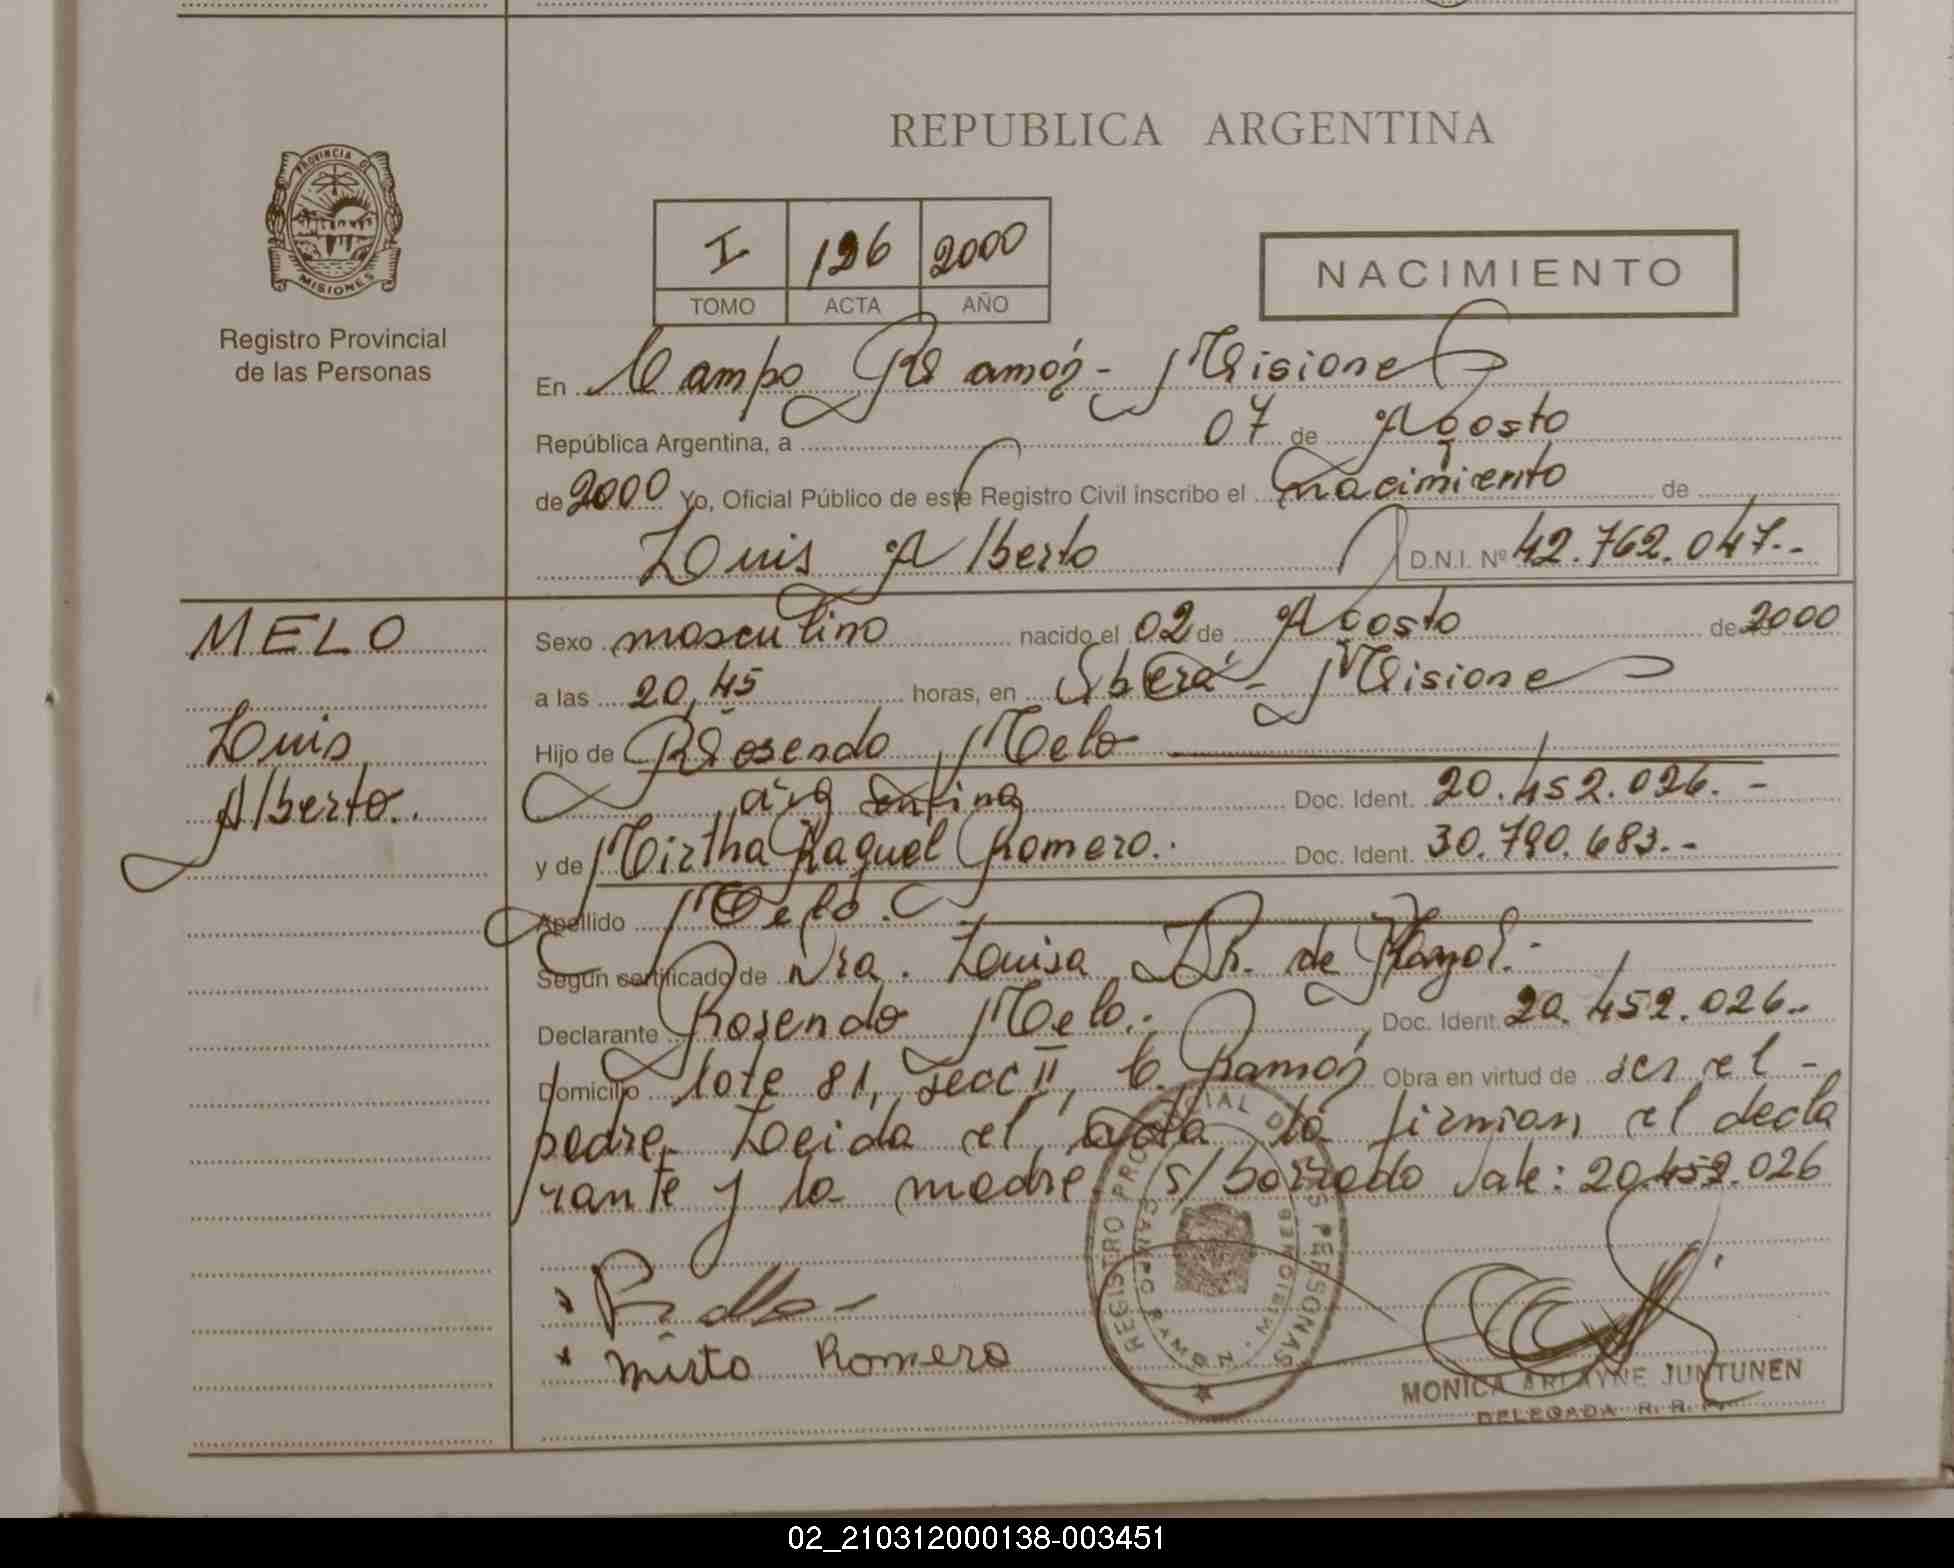 REPUBLICA ARGENTINA
PROVINCIA DE
MISIONES
Registro Provincial
de las Personas
I 126 2000
TOMO ACTA AÑO
NACIMIENTO
En Campo Ramón - Misiones
República Argentina, a 07 de Agosto
de 2000 Yo, Oficial Público de este Registro Civil inscribo el nacimiento de
Luis Alberto D.N.I. Nº 42.762.047.-
MELO
Luis
Alberto.
Sexo masculino nacido el 02 de Agosto de 2000
a las 20,45 horas, en Oberá - Misiones
Hijo de Rosendo Melo
argentina Doc. Ident. 20.452.026.-
y de Mirtha Raquel Romero.- Doc. Ident. 30.790.683.-
Apellido Melo.
Según certificado de Dra. Luisa de
Declarante Rosendo Melo.- Doc. Ident. 20.452.026.-
Domicilio lote 81, secc II, C. Ramón Obra en virtud de ser el -
padre. Leida el acta la firman, el decla
rante y la madre s/borrado vale: 20.452.026
mirta Romero
REGISTRO PROVINCIAL DE LAS PERSONAS
CAMPO RAMON - MISIONES
MONICA ARLAYNE JUNTUNEN
DELEGADA R. R. P.
02_210312000138-003451